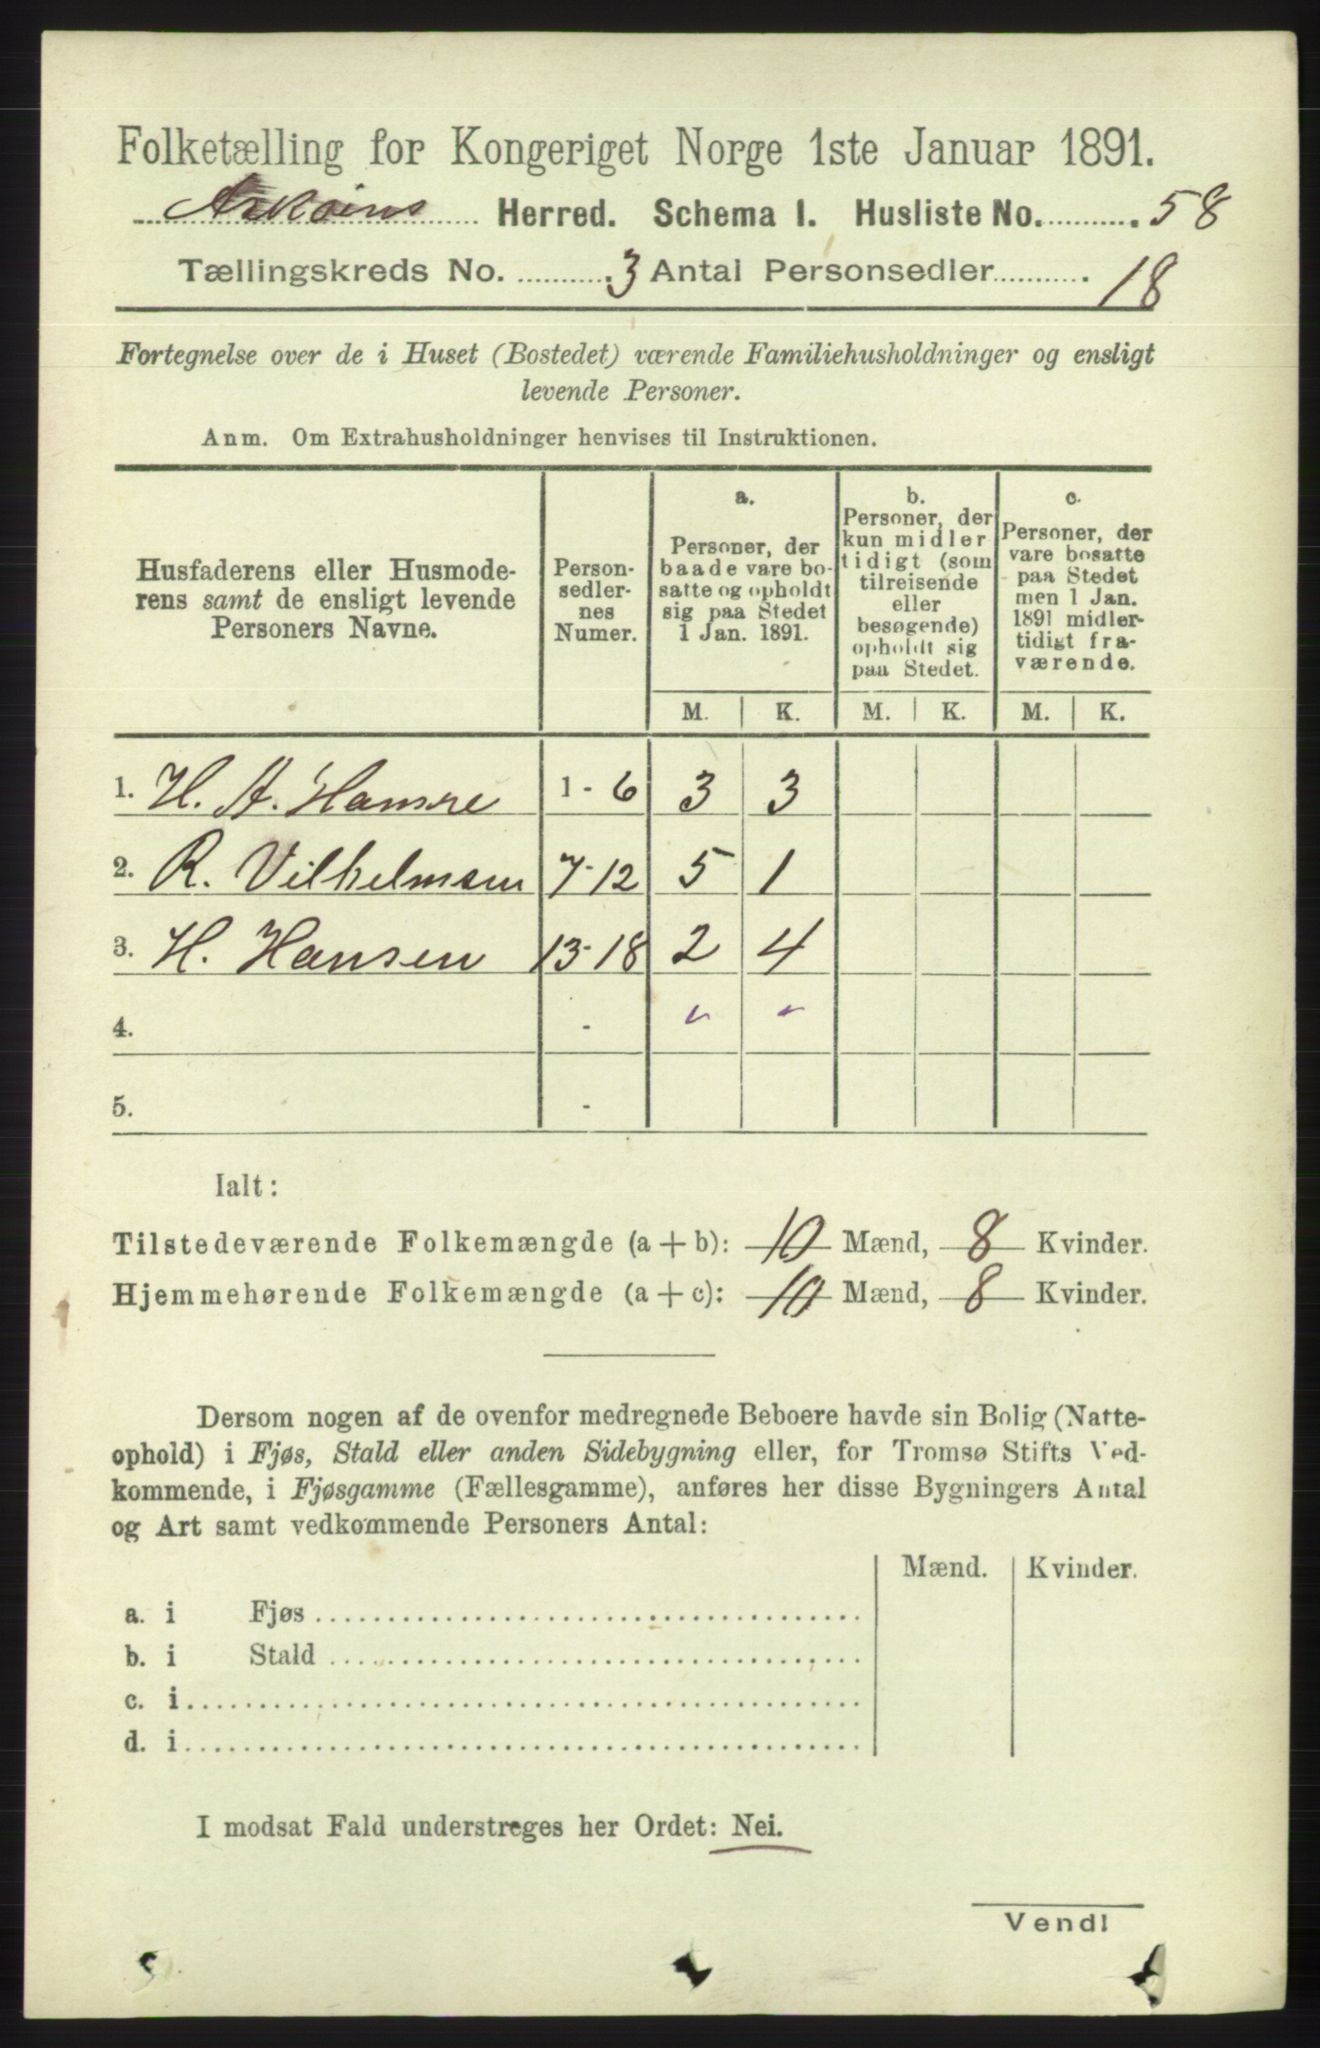 Folketælling for Kongeriget Norge 1ste Januar 1891.
Askøens Herred. Schema I. Husliste No. 58
Tællingskreds No. 3 Antal Personsedler 18
Fortegnelse over de i Huset (Bostedet) værende Familiehusholdninger og ensligt
levende Personer.
Anm. Om Extrahusholdninger henvises til Instruktionen.
Husfaderens eller Husmode-
rens samt de ensligt levende
Personers Navne.
Person-
sedler-
nes
Numer.
a.
Personer, der
baade vare bo-
satte og opholdt
sig paa Stedet
1 Jan. 1891.
b.
Personer, der
kun midler
tidigt (som
tilreisende
eller
besøgende)
opholdt sig
paa Stedet.
c.
Personer, der
vare bosatte
paa Stedet
men 1 Jan.
1891 midler-
tidigt fra-
værende.
M. K. M. K. M. K.
1. H. A. Hansen 1 - 6 3 3
2. R. Vilhelmsen 7-12 5 1
3. H. Hansen 13-18 2 4
4. -
5. -
Ialt:
Tilstedeværende Folkemængde (a + b): 10 Mænd, 8 Kvinder.
Hjemmehørende Folkemængde (a + c): 10 Mænd, 8 Kvinder.
Dersom nogen af de ovenfor medregnede Beboere havde sin Bolig (Natte-
ophold) i Fjøs, Stald eller anden Sidebygning eller, for Tromsø Stifts Ved-
kommende, i Fjøsgamme (Fællesgamme), anføres her disse Bygningers Antal
og Art samt vedkommende Personers Antal:
Mænd. Kvinder.
a. i Fjøs
b. i Stald
c. i
d. i
I modsat Fald understreges her Ordet: Nei.
Vend!